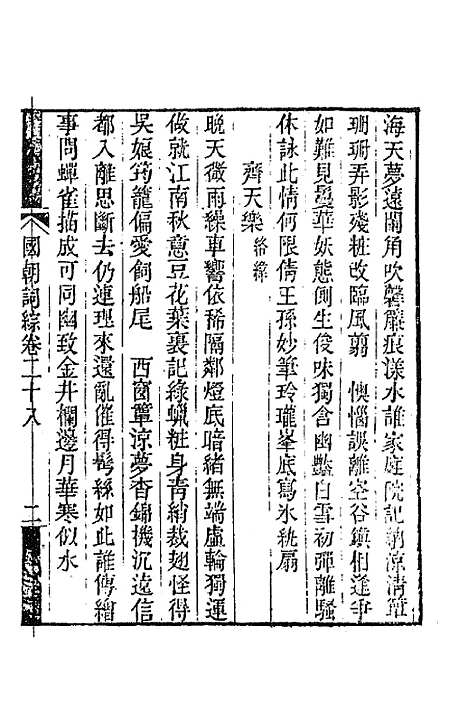 海天夢遠闌角吹馨簾痕漾水誰家庭院記納涼清簟
珊珊弄影殘粧改臨風翦　懊惱誤離空谷鎮伯逢爭
如難見鬓華妖態側生俊味獨含幽豔白雪初彈離騷
休詠此情何限倩王孫妙筆玲瓏峯底寫氷紈扇
齊天樂 絡緯
晚天微雨繰車響依稀隔鄰燈底暗緒無端虛輪獨運
做就江南秋意豆花葉裏記綠蠟粧身靑綃裁翅怪得
吳娘筠籠偏愛飼船尾　西窗簟涼夢杳錦機沉遠信
都入離思斷去仍連理來還亂催得鬓絲如此誰傳繪
事問蟬雀描成可同幽致金井欄邊月華寒似水
國朝詞綜卷二十八
二